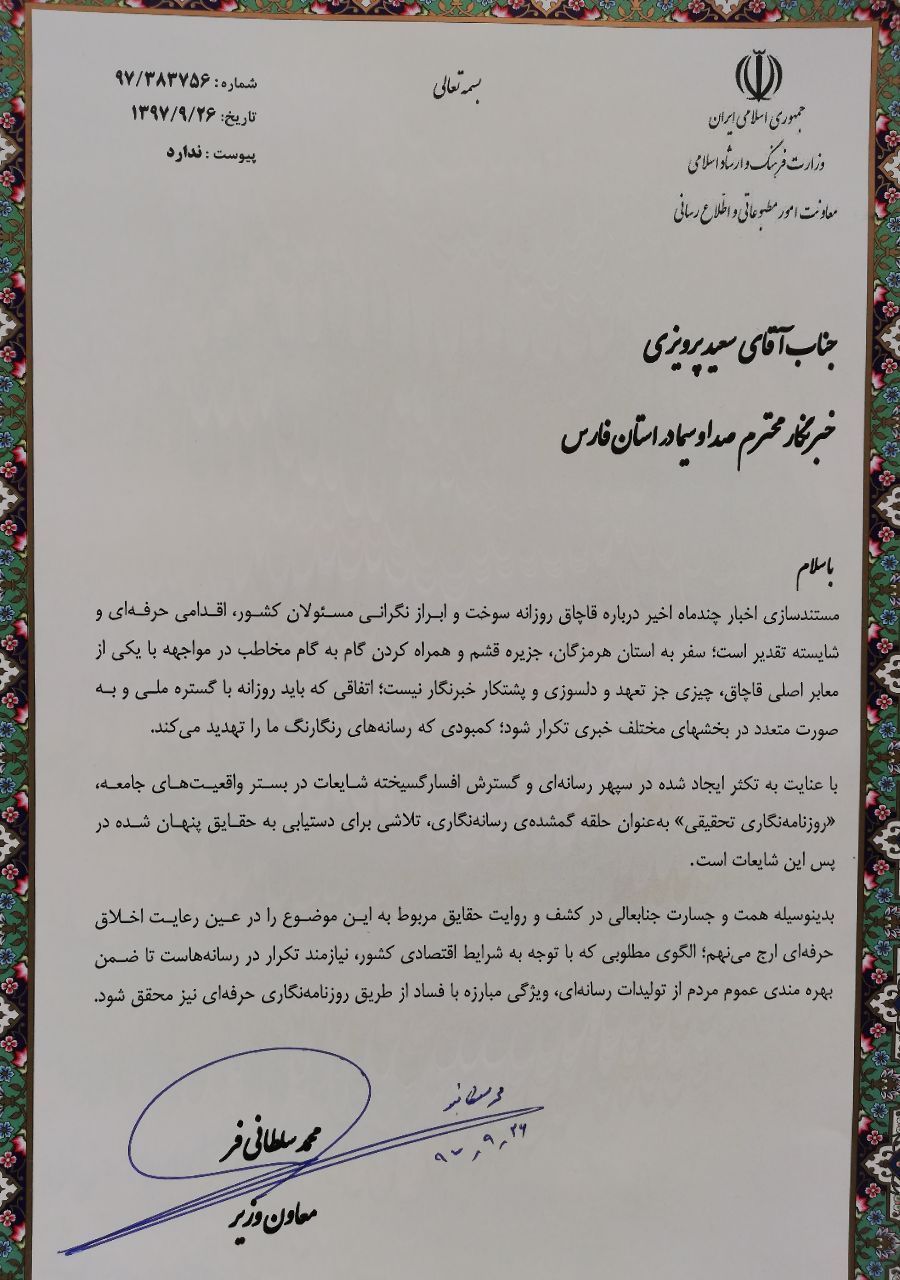 بسمه تعالی
جمهوری اسلامی ایران
وزارت فرهنگ و ارشاد اسلامی
معاونت امور مطبوعاتی و اطلاع رسانی
شماره: ۹۷/۳۸۳۷۵۶
تاریخ: ۱۳۹۷/۹/۲۶
پیوست : ندارد
جناب آقای سعید پرویزی
خبرنگار محترم صدا و سیما در استان فارس
با سلام
مستندسازی اخبار چندماه اخیر درباره قاچاق روزانه سوخت و ابراز نگرانی مسئولان کشور، اقدامی حرفه‌ای و
شایسته تقدیر است؛ سفر به استان هرمزگان، جزیره قشم و همراه کردن گام به گام مخاطب در مواجهه با یکی از
معابر اصلی قاچاق، چیزی جز تعهد و دلسوزی و پشتکار خبرنگار نیست؛ اتفاقی که باید روزانه با گستره ملی و به
صورت متعدد در بخشهای مختلف خبری تکرار شود؛ کمبودی که رسانه‌های رنگارنگ ما را تهدید می‌کند.
با عنایت به تکثر ایجاد شده در سپهر رسانه‌ای و گسترش افسارگسیخته شایعات در بستر واقعیت‌های جامعه،
«روزنامه‌نگاری تحقیقی» به‌عنوان حلقه گمشده‌ی رسانه‌نگاری، تلاشی برای دستیابی به حقایق پنهان شده در
پس این شایعات است.
بدینوسیله همت و جسارت جنابعالی در کشف و روایت حقایق مربوط به این موضوع را در عین رعایت اخلاق
حرفه‌ای ارج می‌نهم؛ الگوی مطلوبی که با توجه به شرایط اقتصادی کشور، نیازمند تکرار در رسانه‌هاست تا ضمن
بهره مندی عموم مردم از تولیدات رسانه‌ای، ویژگی مبارزه با فساد از طریق روزنامه‌نگاری حرفه‌ای نیز محقق شود.
۹۷/۹/۲۶
محمد سلطانی فر
معاون وزیر